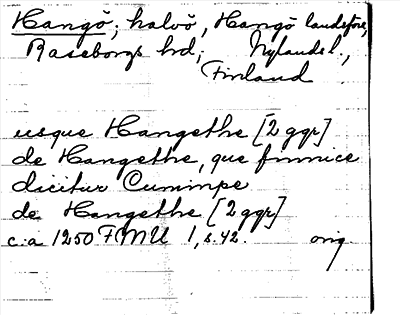 Hangö; halvö, Hangö landsförs,
Raseborgs hd, Nylands l.,
Finland
usque Hangethe [2 ggr]
de Hangethe, que finnice
dicitur Cuminpe
de Hangethe [2 ggr]
c:a 1250 FMU 1, s. 42. orig.